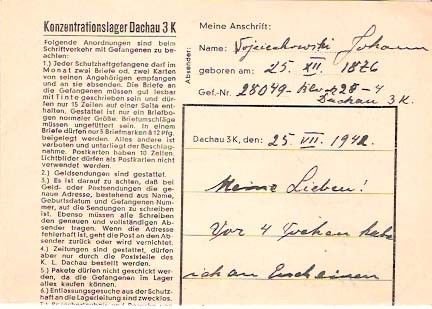 Konzentrationslager Dachau 3 K
Folgende Anordnungen sind beim
Schriftverkehr mit Gefangenen zu be-
achten:
1.) Jeder Schutzhaftgefangene darf im
Monat zwei Briefe od. zwei Karten
von seinen Angehörigen empfangen
und an sie absenden. Die Briefe an
die Gefangenen müssen gut lesbar
mit Tinte geschrieben sein und dür-
fen nur 15 Zeilen auf einer Seite ent-
halten. Gestattet ist nur ein Briefbo-
gen normaler Größe. Briefumschläge
müssen ungefüttert sein. In einem
Briefe dürfen nur 5 Briefmarken à 12 Pfg.
beigelegt werden. Alles andere ist
verboten und unterliegt der Beschlag-
nahme. Postkarten haben 10 Zeilen.
Lichtbilder dürfen als Postkarten nicht
verwendet werden.
2.) Geldsendungen sind gestattet.
3.) Es ist darauf zu achten, daß bei
Geld- oder Postsendungen die ge-
naue Adresse, bestehend aus Name,
Geburtsdatum und Gefangenen-Num-
mer, auf die Sendungen zu schreiben
ist. Ebenso müssen alle Schreiben
den genauen und vollständigen Ab-
sender tragen. Wenn die Adresse
fehlerhaft ist, geht die Post an den Ab-
sender zurück oder wird vernichtet.
4.) Zeitungen sind gestattet, dürfen
aber nur durch die Poststelle des
K. L. Dachau bestellt werden.
5.) Pakete dürfen nicht geschickt wer-
den, da die Gefangenen im Lager
alles kaufen können.
6.) Entlassungsgesuche aus der Schutz-
haft an die Lagerleitung sind zwecklos.
Absender:
Meine Anschrift:
Name: Wojciechowski Johann
geboren am: 25. XII. 1876
Gef.-Nr. 28049 - 28-4
Dachau 3 K.
Dachau 3 K, den: 25. VII. 1942.
Meine Lieben!
Vor 4 Wochen habe
ich an